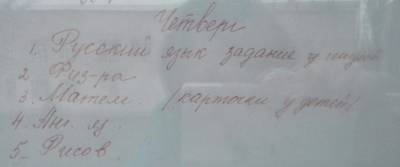 Четверг
1. Русский язык задание у
2 Физ-ра
3. Матем. /карточки у детей/
4. Анг. яз.
5. Рисов.